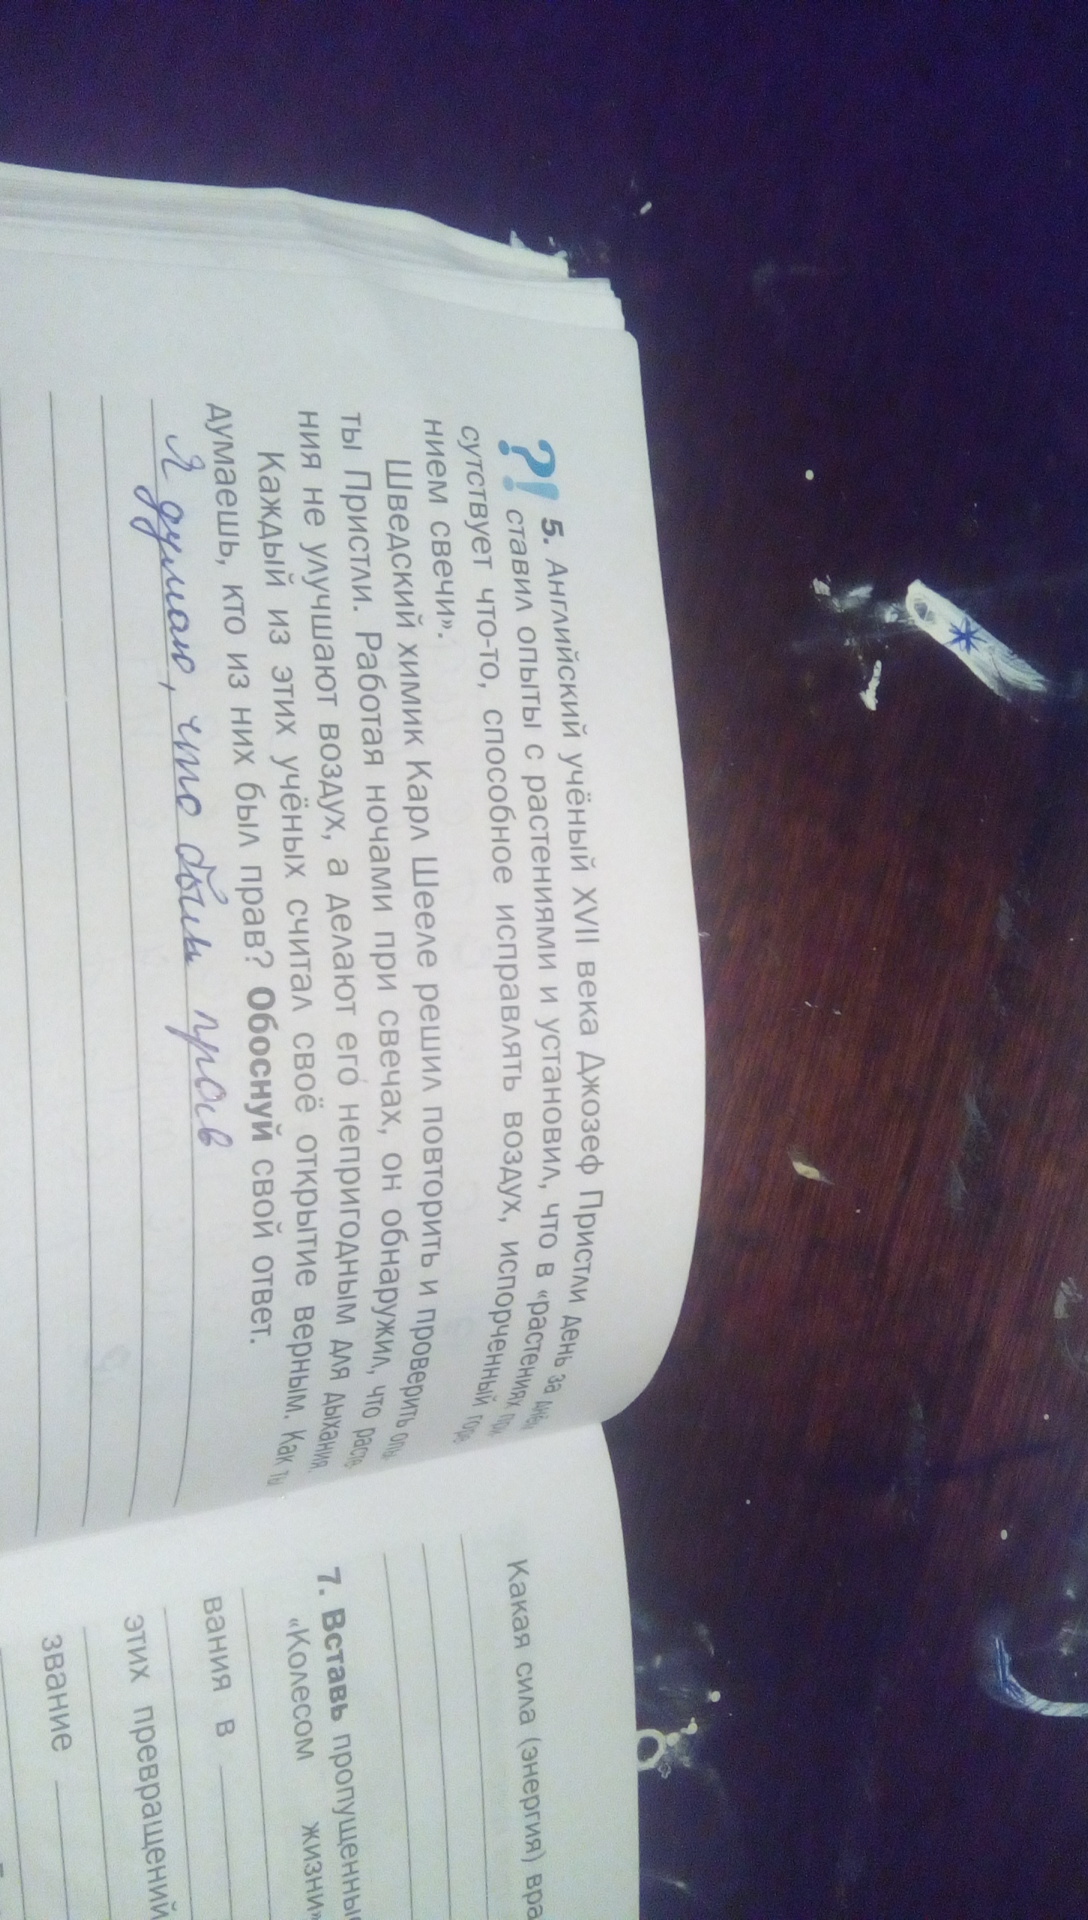 5. Английский учёный XVII века Джозеф Пристли день за днём
?! ставил опыты с растениями и установил, что в «растениях при
сутствует что-то, способное исправлять воздух, испорченный горе
нием свечи».
Шведский химик Карл Шееле решил повторить и проверить опы
ты Пристли. Работая ночами при свечах, он обнаружил, что расте
ния не улучшают воздух, а делают его непригодным для дыхания.
Каждый из этих учёных считал своё открытие верным. Как ты
думаешь, кто из них был прав? Обоснуй свой ответ.
Я думаю, что был прав
Какая сила (энергия) вра
7. Вставь пропущенные
«Колесом жизни»
вания в
этих превращений
звание